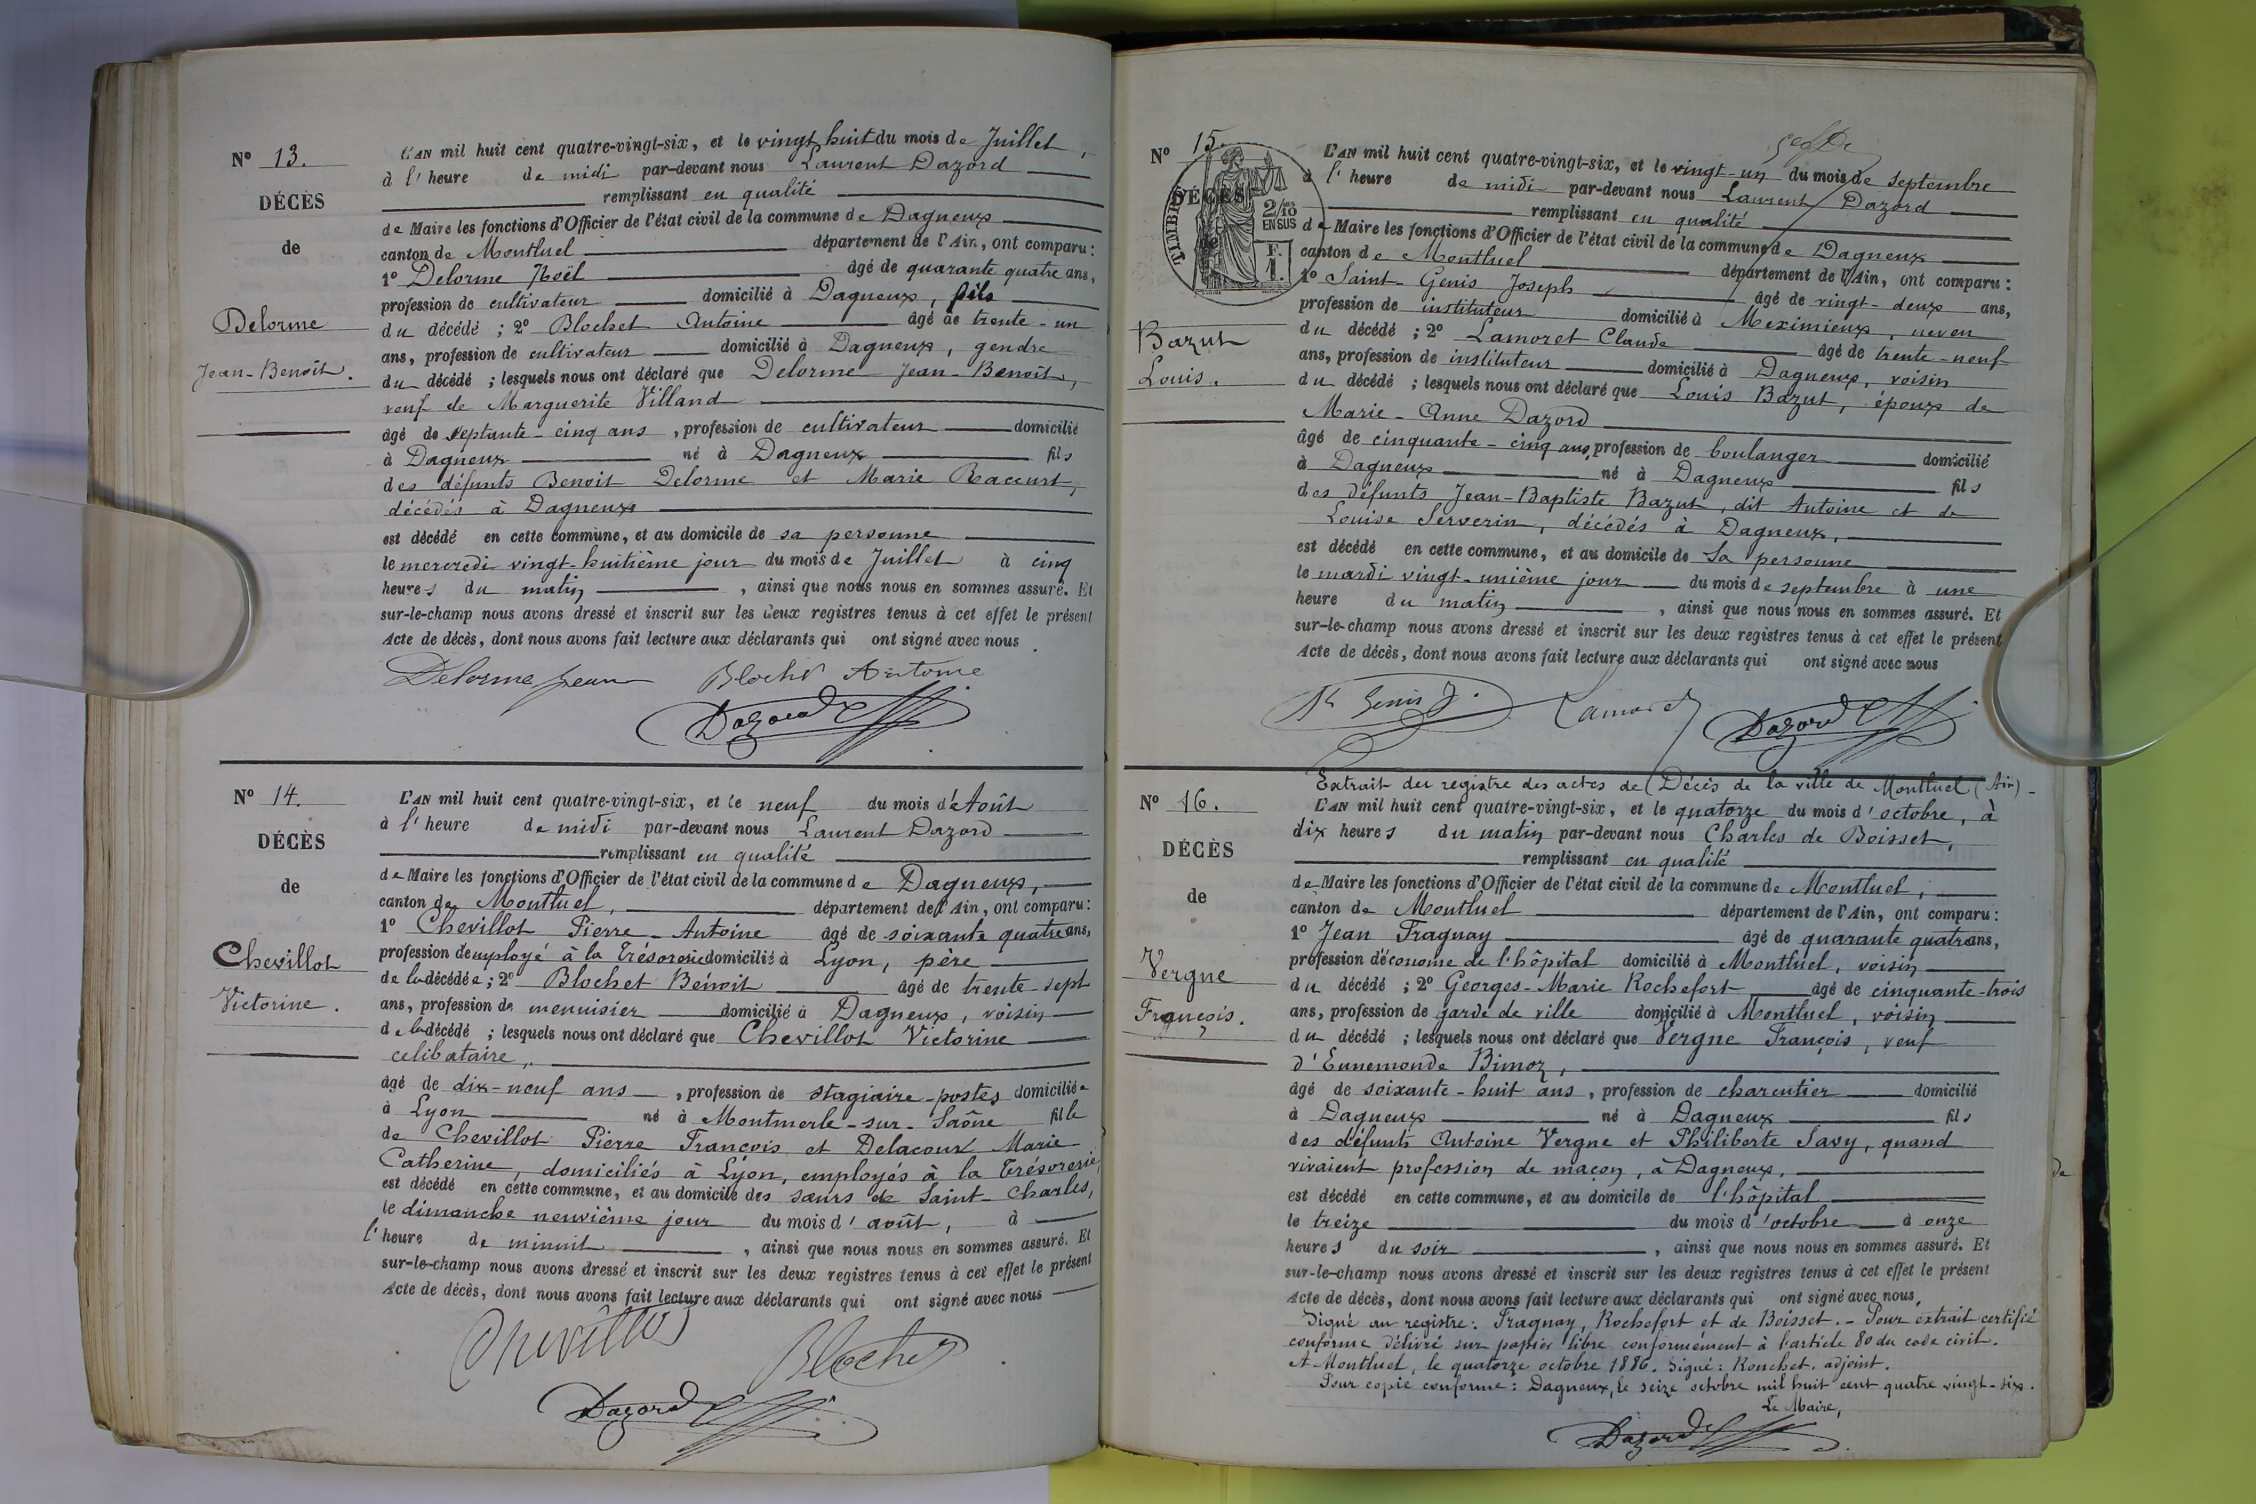 N° 13.
DÉCÈS
de
Delorme
Jean-Benoît.
L'AN mil huit cent quatre-vingt-six, et le vingt huit du mois de Juillet,
à l'heure de midi par-devant nous Laurent Dazord
remplissant en qualité
de Maire les fonctions d'Officier de l'état civil de la commune de Dagneux
canton de Montluel département de l'Ain, ont comparu:
1° Delorme Noël âgé de quarante quatre ans,
profession de cultivateur domicilié à Dagneux, fils
du décédé; 2° Blochet Antoine âgé de trente-un
ans, profession de cultivateur domicilié à Dagneux, gendre
du décédé; lesquels nous ont déclaré que Delorme Jean-Benoît,
veuf de Marguerite Villand
âgé de septante-cinq ans, profession de cultivateur domicilié
à Dagneux né à Dagneux fils
des défunts Benoit Delorme et Marie Raccurt,
décédés à Dagneux
est décédé en cette commune, et au domicile de sa personne
le mercredi vingt-huitième jour du mois de Juillet à cinq
heures du matin, ainsi que nous nous en sommes assuré. Et
sur-le-champ nous avons dressé et inscrit sur les deux registres tenus à cet effet le présent
Acte de décès, dont nous avons fait lecture aux déclarants qui ont signé avec nous.
Delorme Jean Blochet Antoine
Dazord
N° 14.
DÉCÈS
de
Chevillot
Victorine.
L'AN mil huit cent quatre-vingt-six, et le neuf du mois d'Août
à l'heure de midi par-devant nous Laurent Dazord
remplissant en qualité
de Maire les fonctions d'Officier de l'état civil de la commune de Dagneux,
canton de Montluel, département de l'Ain, ont comparu:
1° Chevillot Pierre-Antoine âgé de soixante quatre ans,
profession d'employé à la Trésorerie domicilié à Lyon, père
de la décédée; 2° Blochet Benoit âgé de trente-sept
ans, profession de menuisier domicilié à Dagneux, voisin
de la décédé; lesquels nous ont déclaré que Chevillot Victorine
celibataire,
âgé de dix-neuf ans, profession de stagiaire-postes domiciliée
à Lyon né à Montmerle-sur-Saône fille
de Chevillot Pierre François et Delacour Marie
Catherine, domiciliés à Lyon, employés à la Trésorerie,
est décédé en cette commune, et au domicile des sœurs de Saint-Charles,
le dimanche neuvième jour du mois d'août, à
l'heure de minuit, ainsi que nous nous en sommes assuré. Et
sur-le-champ nous avons dressé et inscrit sur les deux registres tenus à cet effet le présent
Acte de décès, dont nous avons fait lecture aux déclarants qui ont signé avec nous
Chevillot
Blochet
Dazord
N° 15.
DÉCÈS
de
TIMBRE
2/10 EN SUS
F. 1.
Bazut
Louis.
L'AN mil huit cent quatre-vingt-six, et le vingt-un du mois de septembre
à l'heure de midi par-devant nous Laurent Dazord
remplissant en qualité
de Maire les fonctions d'Officier de l'état civil de la commune de Dagneux
canton de Montluel département de l'Ain, ont comparu:
1° Saint-Genis Joseph âgé de vingt-deux ans,
profession de instituteur domicilié à Meximieux, neveu
du décédé; 2° Lamoret Claude âgé de trente-neuf
ans, profession de instituteur domicilié à Dagneux, voisin
du décédé; lesquels nous ont déclaré que Louis Bazut, époux de
Marie-Anne Dazord
âgé de cinquante-cinq ans, profession de boulanger domicilié
à Dagneux né à Dagneux fils
des défunts Jean-Baptiste Bazut, dit Antoine et de
Louise Serverin, décédés à Dagneux,
est décédé en cette commune, et au domicile de sa personne
le mardi vingt-unième jour du mois de septembre à une
heure du matin, ainsi que nous nous en sommes assuré. Et
sur-le-champ nous avons dressé et inscrit sur les deux registres tenus à cet effet le présent
Acte de décès, dont nous avons fait lecture aux déclarants qui ont signé avec nous
St Genis J. Lamoret Dazord
Extrait du registre des actes de Décès de la ville de Montluel (Ain)-
N° 16.
DÉCÈS
de
Vergne
François.
L'AN mil huit cent quatre-vingt-six, et le quatorze du mois d'octobre, à
dix heures du matin par-devant nous Charles de Boisset,
remplissant en qualité
de Maire les fonctions d'Officier de l'état civil de la commune de Montluel,
canton de Montluel département de l'Ain, ont comparu:
1° Jean Fragnay âgé de quarante quatre ans,
profession d'économe de l'hôpital domicilié à Montluel, voisin
du décédé; 2° Georges-Marie Rochefort âgé de cinquante-trois
ans, profession de garde de ville domicilié à Montluel, voisin
du décédé; lesquels nous ont déclaré que Vergne François, veuf
d'Ennemonde Bimoz,
âgé de soixante-huit ans, profession de charcutier domicilié
à Dagneux né à Dagneux fils
des défunts Antoine Vergne et Philiberte Savy, quand
vivaient profession de maçon, à Dagneux,
est décédé en cette commune, et au domicile de l'hôpital
le treize du mois d'octobre à onze
heures du soir, ainsi que nous nous en sommes assuré. Et
sur-le-champ nous avons dressé et inscrit sur les deux registres tenus à cet effet le présent
Acte de décès, dont nous avons fait lecture aux déclarants qui ont signé avec nous,
Signé au registre: Fragnay, Rochefort et de Boisset.- Pour extrait certifié
conforme délivré sur papier libre conformément à l'article 80 du code civil.
A Montluel, le quatorze octobre 1886. Signé: Ronchet. adjoint.
Pour copie conforme: Dagneux, le seize octobre mil huit cent quatre vingt-six.
Le Maire,
Dazord
de